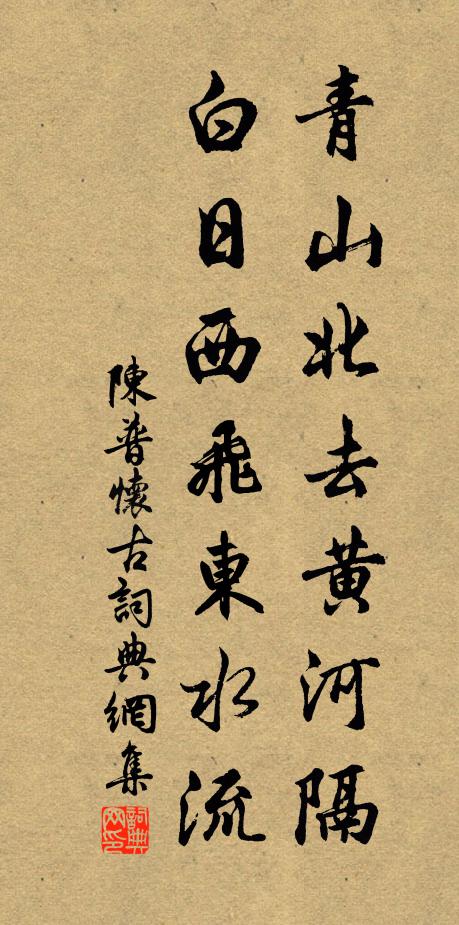 青山北去黄河隔
白日西飛東水流
陳普懷古詞典網集
詞典網印